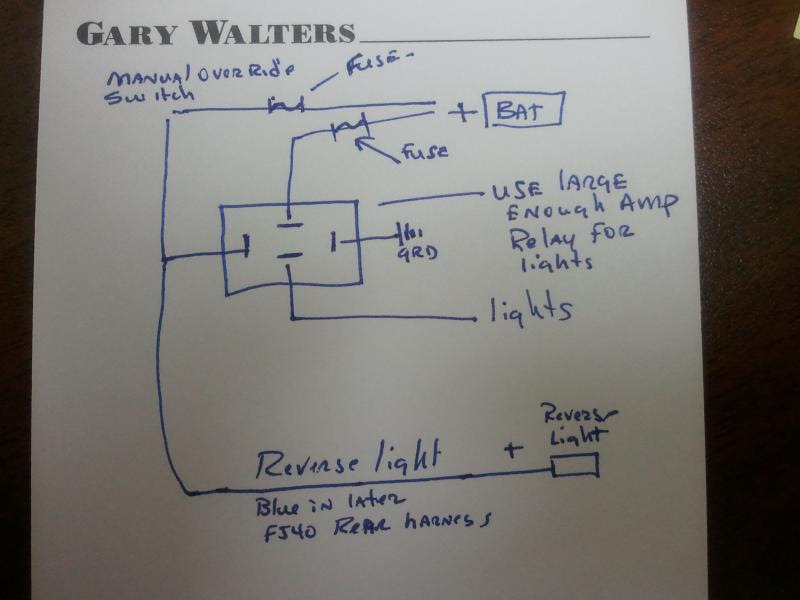 GARY WALTERS
MANUAL OVERRIDE
SWITCH
FUSE
+ BAT
FUSE
USE LARGE
ENOUGH AMP
RELAY FOR
lights
GRD
lights
Reverse
Light
+
Reverse light
Blue in later
FJ40 REAR HARNESS